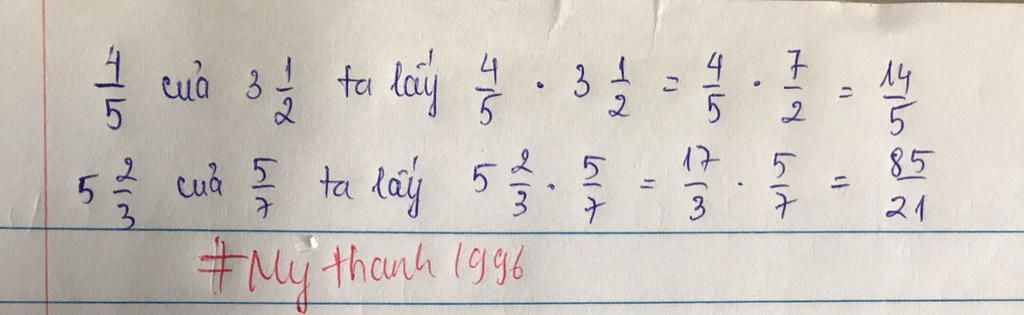 4/5 của 3 1/2 ta lấy 4/5 . 3 1/2 = 4/5 . 7/2 = 14/5
5 2/3 của 5/7 ta lấy 5 2/3 . 5/7 = 17/3 . 5/7 = 85/21
#My thanh 1996